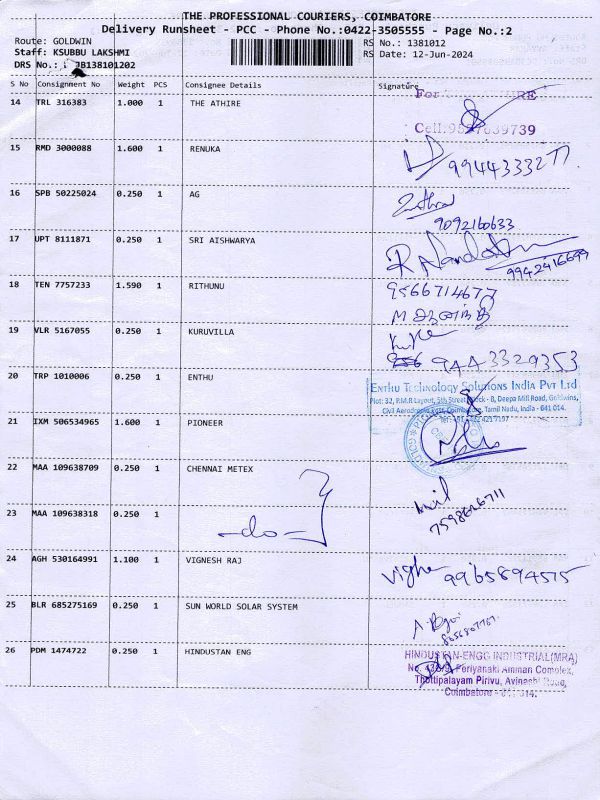 THE PROFESSIONAL COURIERS, COIMBATORE
Delivery Runsheet - PCC - Phone No.:0422-3505555 - Page No.:2
Route: GOLDWIN
RS No: 1381012
Staff: KSUBBU LAKSHMI
RS Date: 12-Jun-2024
DRS No.: JB138101202
S No Consignment No Weight PCS Consignee Details Signature
14 TRL 316383 1.000 1 THE ATHIRE
For
Cell:
15 RMD 3000088 1.600 1 RENUKA
16 SPB 50225024 0.250 1 AG
9092160633
17 UPT 8111871 0.250 1 SRI AISHWARYA
9942416699
18 TEN 7757233 1.590 1 RITHUNU
9566714677
19 VLR 5167055 0.250 1 KURUVILLA
9443329353
20 TRP 1010006 0.250 1 ENTHU
ENTHU Technology Solutions India Pvt Ltd
Plot: 32, P.M.R Layout, 5th Street, Block - B, Deepa Mill Road, Goldwins,
Civil Aerodrome Post, Coimbatore, Tamil Nadu, India - 641 014.
21 IXM 506534965 1.600 1 PIONEER
22 MAA 109638709 0.250 1 CHENNAI METEX
23 MAA 109638318 0.250 1
-do-
24 AGH 530164991 1.100 1 VIGNESH RAJ
9965894575
25 BLR 685275169 0.250 1 SUN WORLD SOLAR SYSTEM
26 PDM 1474722 0.250 1 HINDUSTAN ENG
HINDUSTAN-ENGG INDUSTRIAL(MRA)
Periyanaki Amman Complex,
Thottipalayam Pirivu, Avinashi Road,
Coimbatore -